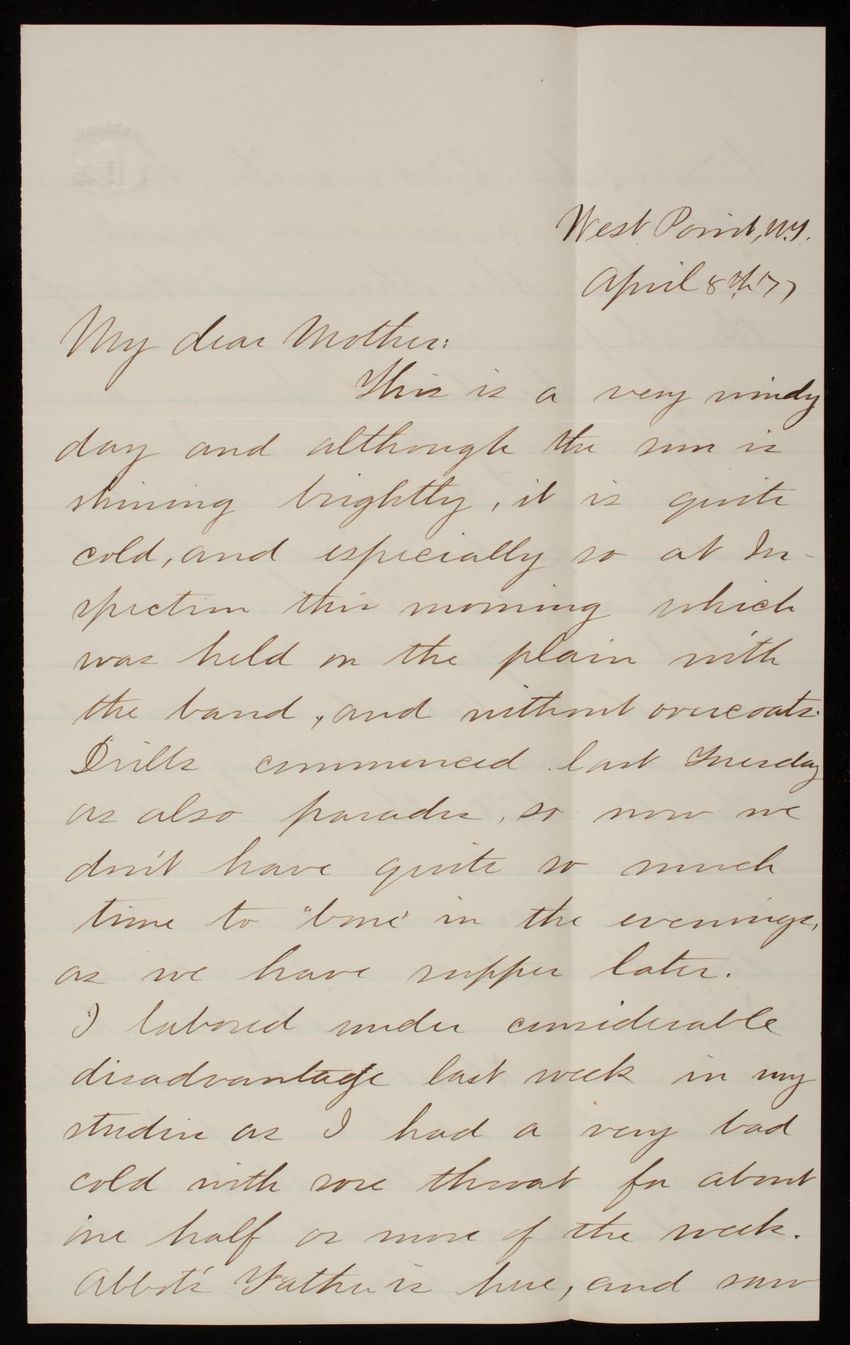 West Point, N.Y.
April 8th '77
My dear Mother:
This is a very windy
day and although the sun is
shining brightly, it is quite
cold, and especially so at In-
spection this morning which
was held on the plain with
the band, and without overcoats.
Drills commenced last Tuesday
as also parades, so now we
don't have quite so much
time to "bone" in the evenings,
as we have supper later.
I labored under considerable
disadvantage last week in my
studies as I had a very bad
cold with sore throat for about
one half or more of the week.
Abbot's Father is here, and saw